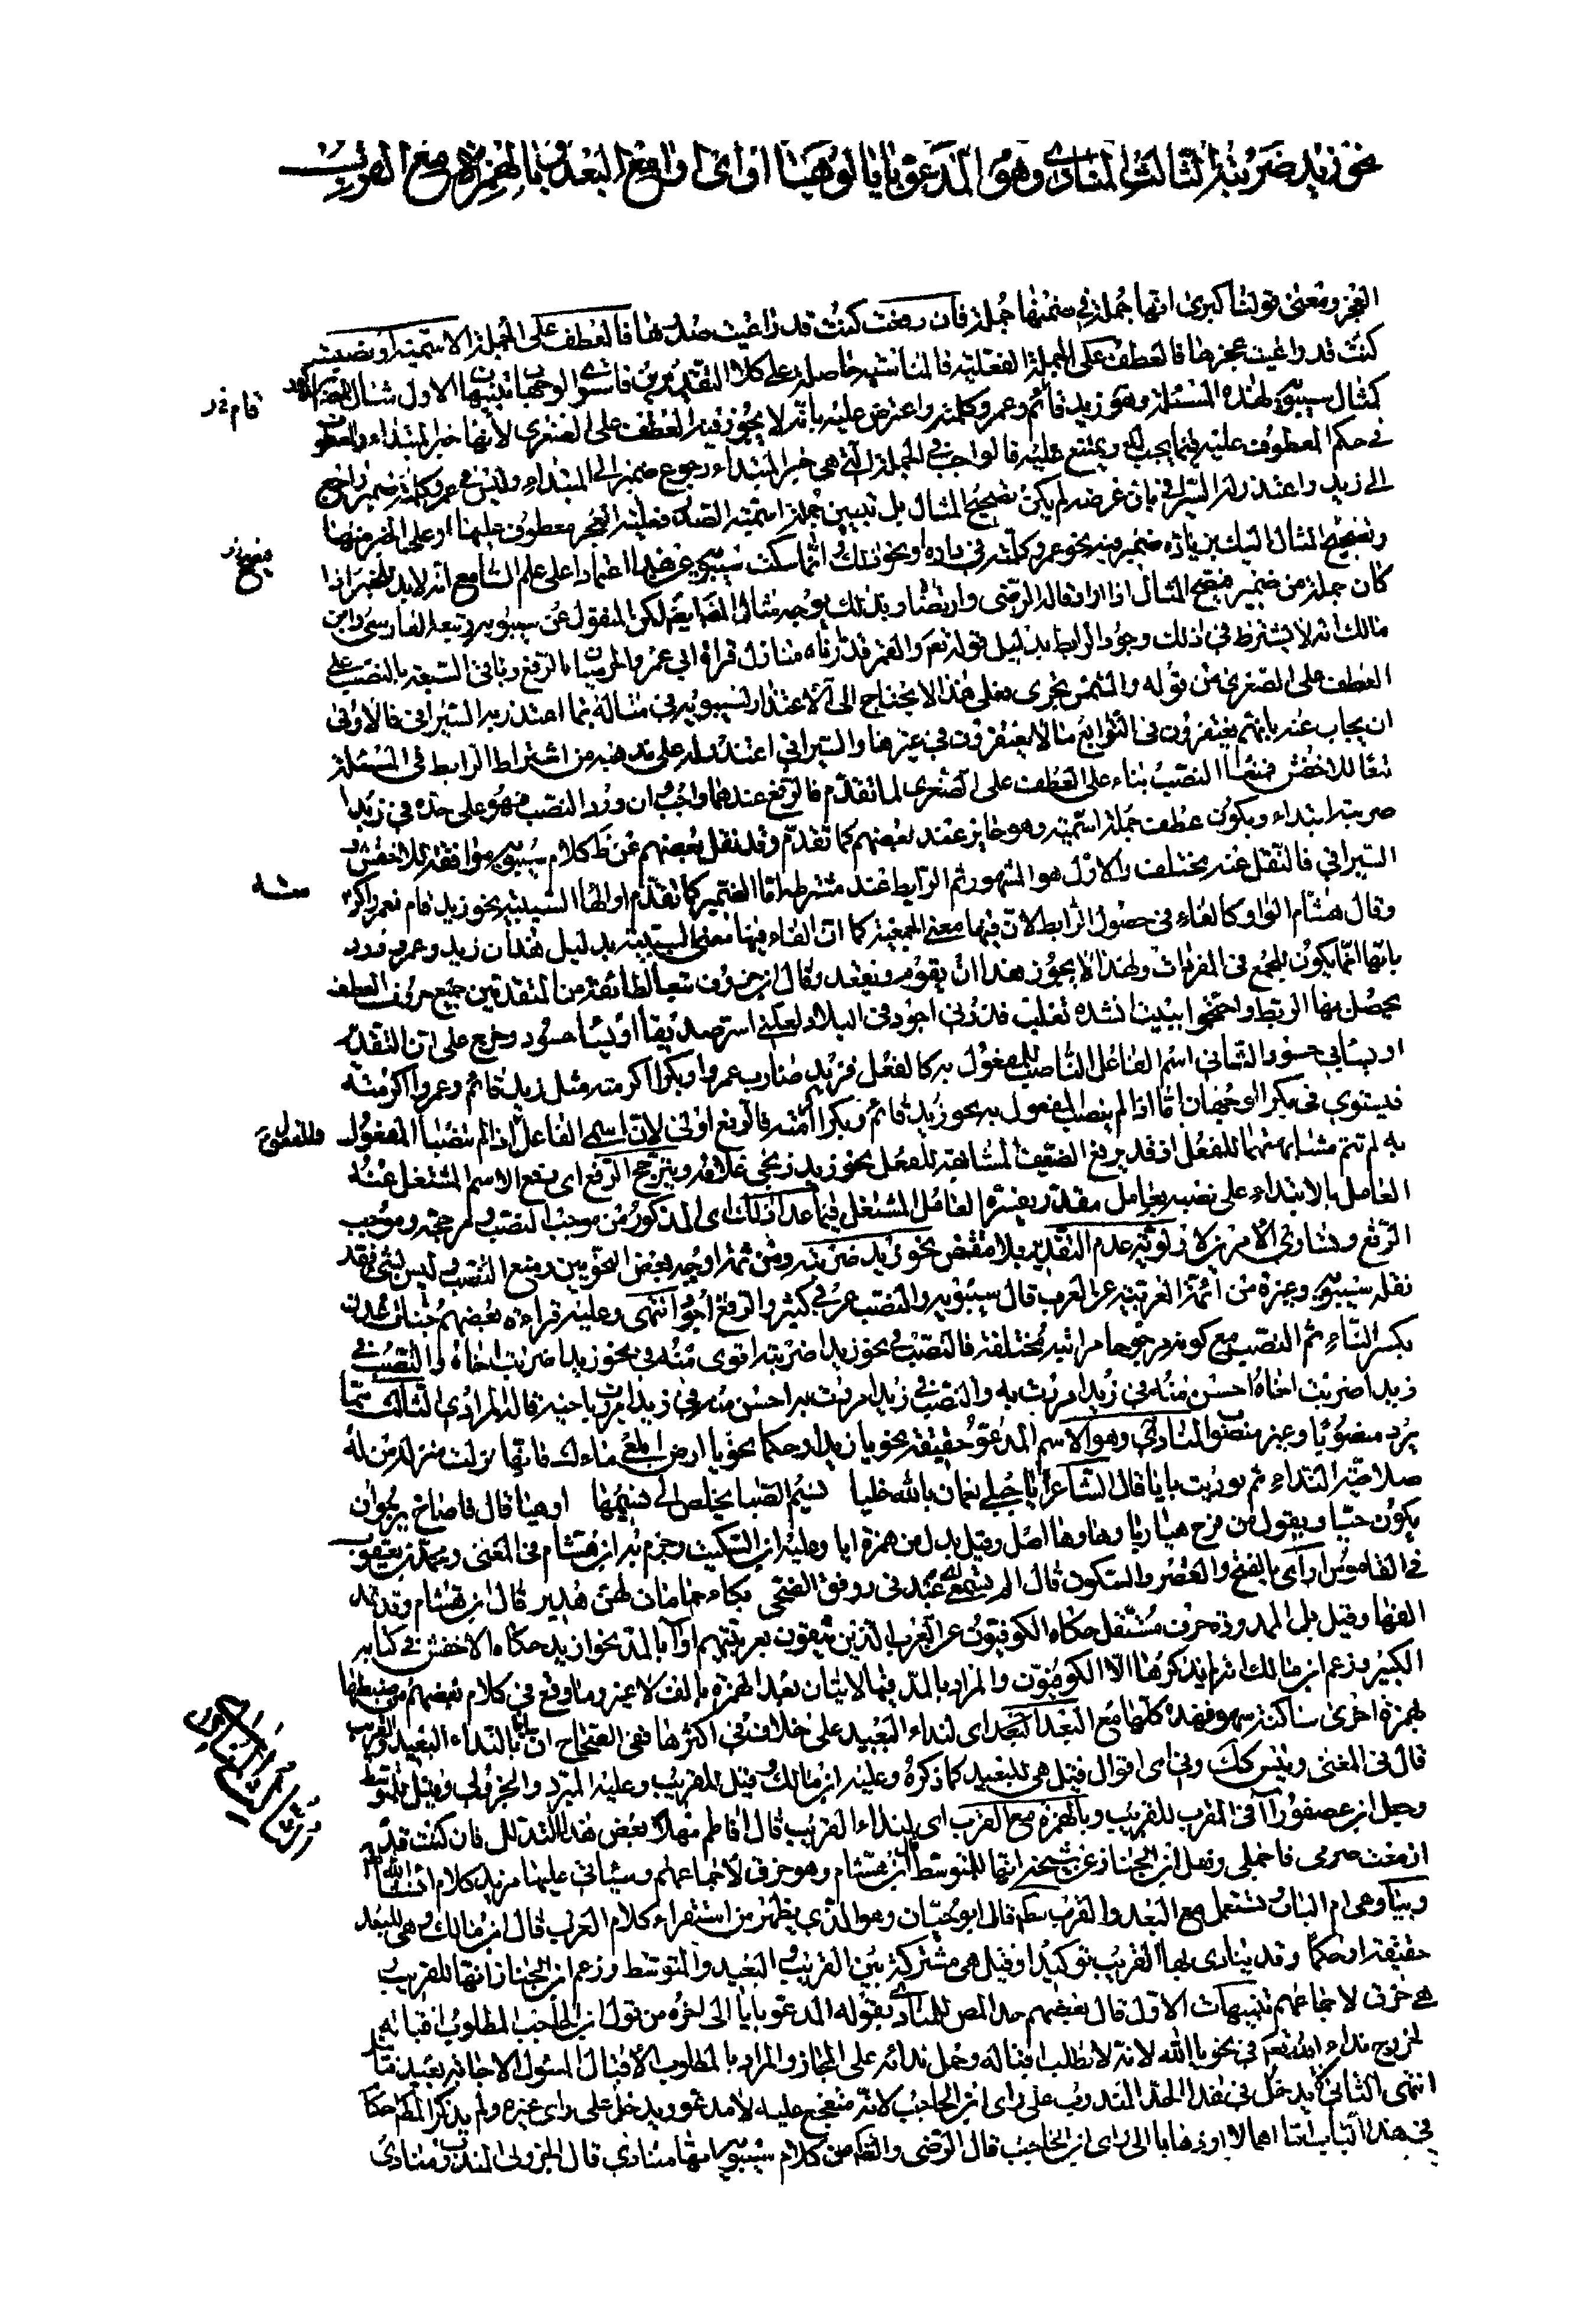 نحو زيد ضربته الثالث المنادى وهو المدعو بايا او هيا او اى او آ مع البعد وبالهمزة مع القرب
العجز ومعنى قولنا كبرى انها جملة في ضمنها جملة فان رفعت كنت قد راعيت صدرها فالعطف على الجملة الاسمية او نصبت
كنت قد راعيت عجزها فالعطف على الجملة الفعلية فالمناسبة حاصلة على كلا التقديرين فاستوى الوجهان تنبيهان الاول مثال المصـ
قام قر
كمثال سيبويه لهذه المسئلة وهو زيد قائم وعمرو كلمته واعترض عليه بانه لا يجوز فيه العطف على الصغرى لانها خبر المبتداء والمعطوف
في حكم المعطوف عليه فيما يجب له ويمتنع عليه فالواجب في الجملة التي هي خبر المبتداء رجوع ضمير الى المبتداء وليس في عمرو كلمته ضمير راجع
الى زيد واعتذر له السيرافي بان غرضه لم يكن تصحيح المثال بل تبيين جملة اسمية الصدر فعلية العجز معطوف عليها او على الجزء منها
وتصحيح المثال اليك بزيادة ضمير فيه نحو عمرو كلمته في داره او نحو ذلك وانما سكت سيبويه عن هذا اعتمادا على علم السامع انه لابد للخبر اذا
كان جملة من ضمير فيصحح المثال اذا اراد قاله الرضى وارتضاه وبذلك يوجه مثال المص ايضا لكن المنقول عن سيبويه وتبعه الفارسى وابن
مالك انه لا يشترط في ذلك وجود الرابط بدليل قوله تعـ والقمر قدرناه منازل قراة ابي عمرو والحرميان بالرفع وباقى السبعة بالنصب على
العطف على الصغرى من قوله والشمس تجرى فعلى هذا لا يحتاج الى الاعتذار لسيبويه في مثاله بما اعتذر به السيرافى فالاولى
ان يجاب عنه بانهم يغتفرون فى الثوانى ما لا يغتفرون في غيرها والسيرافي اعتذر له على مذهبه من اشتراط الرابط في المسئلة
تبعا للاخفش فمنعا النصب بناء على العطف على الصغرى لما تقدم فالرفع عندهما واجب وان ورد النصب فهو على حده في زيدا
ضربته ابتداء ويكون عطف جملة اسمية وهو جايز عند بعضهم كما تقدم وقد نقل بعضهم عن ظ كلام سيبويه موافقة للاخفش و
السيرافي فالنقل عنه مختلف والاول هو المشهور ثم الرابط عند مشترطه اما الضمير كما تقدم او الفاء السببية نحو زيد قام فعمرو اكرمته
وقال هشام الواو كالفاء في حصول الرابط لان فيها معنى الجمعية كما ان الفاء فيها معنى السببية بدليل هذان زيد وعمرو ورد
بانها انما يكون للجمع في المفردات ولهذا لا يجوز هذا ان يقوم ويقعد وقال ابن خروف تبعا لطائفة من المتقدمين جميع حروف العطف
يحصل بها الربط واحتجوا ببيت انشده ثعلب
او يسابي حسود الثاني اسم الفاعل الناصب للمفعول به كالفعل فزيد ضارب عمروا وبكرا اكرمته مثل زيد قائم وعمروا اكرمته
فيستوى في بكر الوجهان اما اذا لم ينصب المفعول به نحو زيد قائم وبكرا اكرمته فالرفع اولى لان اسمى الفاعل اذا لم ينصبا المفعول
به لم تتم مشابهتهما للفعل اذ قد يرفع الضعيف المشابهة للفعل نحو زيد زنجى غلامه ويترجح الرفع اى رفع الاسم المشتغل عنه
العامل بالابتداء على نصبه بعامل مقدر يفسره العامل المشتغل فيما عدا ذلك اى المذكور من موجب النصب ومرجحه وموجب
الرفع وتساوى الامرين لاولوية عدم التقدير بلا مقتض نحو زيد ضربته ومن ثمة اوجبه بعض النحويين ومنع النصب وليس بشئ فقد
نقله سيبويه وغيره من ائمة العربية عن العرب قال سيبويه والنصب عربى كثير والرفع اجود انتهى وعليه قراءة بعضهم جنات عدن
بكسر التاء ثم النصب مع كونه مرجوحا مراتبه مختلفة فالنصب في نحو زيدا ضربته اقوى منه فى نحو زيدا ضربت اخاه والنصب في
زيدا ضربت اخاه احسن منه في زيدا مررت به والنصب في زيدا مررت به احسن منه في زيدا مررت باخيه قاله المرادى الثالث مما
يرد منصوبا وغير منصوب المنادى وهو الاسم المدعو حقيقة نحو يا زيد او حكما نحو يا ارض ابلعى ماءك فانها نزلت منزلة من له
صلاحية النداء ثم نوديت بايا قال الشاعر ايا جبلى نعمان بالله خليا نسيم الصبا يخلص الى نسيمها او هيا قال فاصاخ يرجوان
يكون حيا ويقول من فرح هيا ربا وهاوها اصل وقيل بدل من همزة ايا وعليه ابن السكيت وجزم به ابن هشام في المغنى
في القاموس او اى بالفتح والقصر والسكون قال الم تسمعى اى عبد فى رونق الضحى بكاء حمامات لهن هدير قال ابن هشام وقد تمد
الفها وقيل بل الممدودة حرف مستقل حكاه الكوفيون عن العرب الذين يثقون بعربيتهم او آ بالمد نحو ازيد حكاه الاخفش فى كتابه
الكبير وزعم ابن مالك انه لم يذكرها الا الكوفيون والمراد بالمد فيها الاتيان بعد الهمزة بالف لا غير وما وقع في كلام بعضهم من ضبطها
بهمزة اخرى ساكنة سهو فهذه كلها مع البعد اى لنداء البعيد على خلاف فى اكثرها ففى الصحاح ان ايا لنداء البعيد والقريب
قال فى المغنى وليس كك وفى اى اقوال فقيل هى للبعيد كما ذكره وعليه ابن مالك وقيل للقريب وعليه المبرد والجزولى وقيل للمتوسط
وجعل ابن عصفور آ فى المقرب للقريب وبالهمزة مع القرب اى لنداء القريب قال افاطم مهلا بعض هذا التدلل فان كنت قد
ازمعت صرمى فاجملى ونقل ابن الخباز عن شيخه انها للمتوسط قال ابن هشام وهو خرق لاجماعهم وسياتى عليها مزيد كلام انشاء الله
وبيا وهى ام الباب وتستعمل مع البعد والقرب قال ابو حيان وهو الذى يظهر من استقراء كلام العرب قال ابن مالك وهى للبعد
حقيقة او حكما وقد ينادى بها القريب توكيدا وقيل هى مشتركة بين القريب والبعيد والمتوسط وزعم ابن الخباز انها للقريب
هى خرق لاجماعهم تنبيهات الاول قال بعضهم حد المص للمنادى بقوله المدعو بايا الى اخره من قول ابن الحاجب المطلوب اقباله
لخروج نداء الله تعـ فى نحو يا الله لانه لا تطلب اقباله وحمل ندائه على المجاز والمراد بالمطلوب الاقبال المسئول الاجابة بعيد
انتهى الثانى يدخل فى هذا الحد المندوب على راى ابن الحاجب لانه متفجع عليه لا مدعو ويدخل على راى غيره ولم يذكر المص احكا
فى هذا الكتاب اما اهمالا او ذهابا الى راى ابن الحاجب قال الرضى والظ من كلام سيبويه انها منادى قال الجزولى المندوب منادى